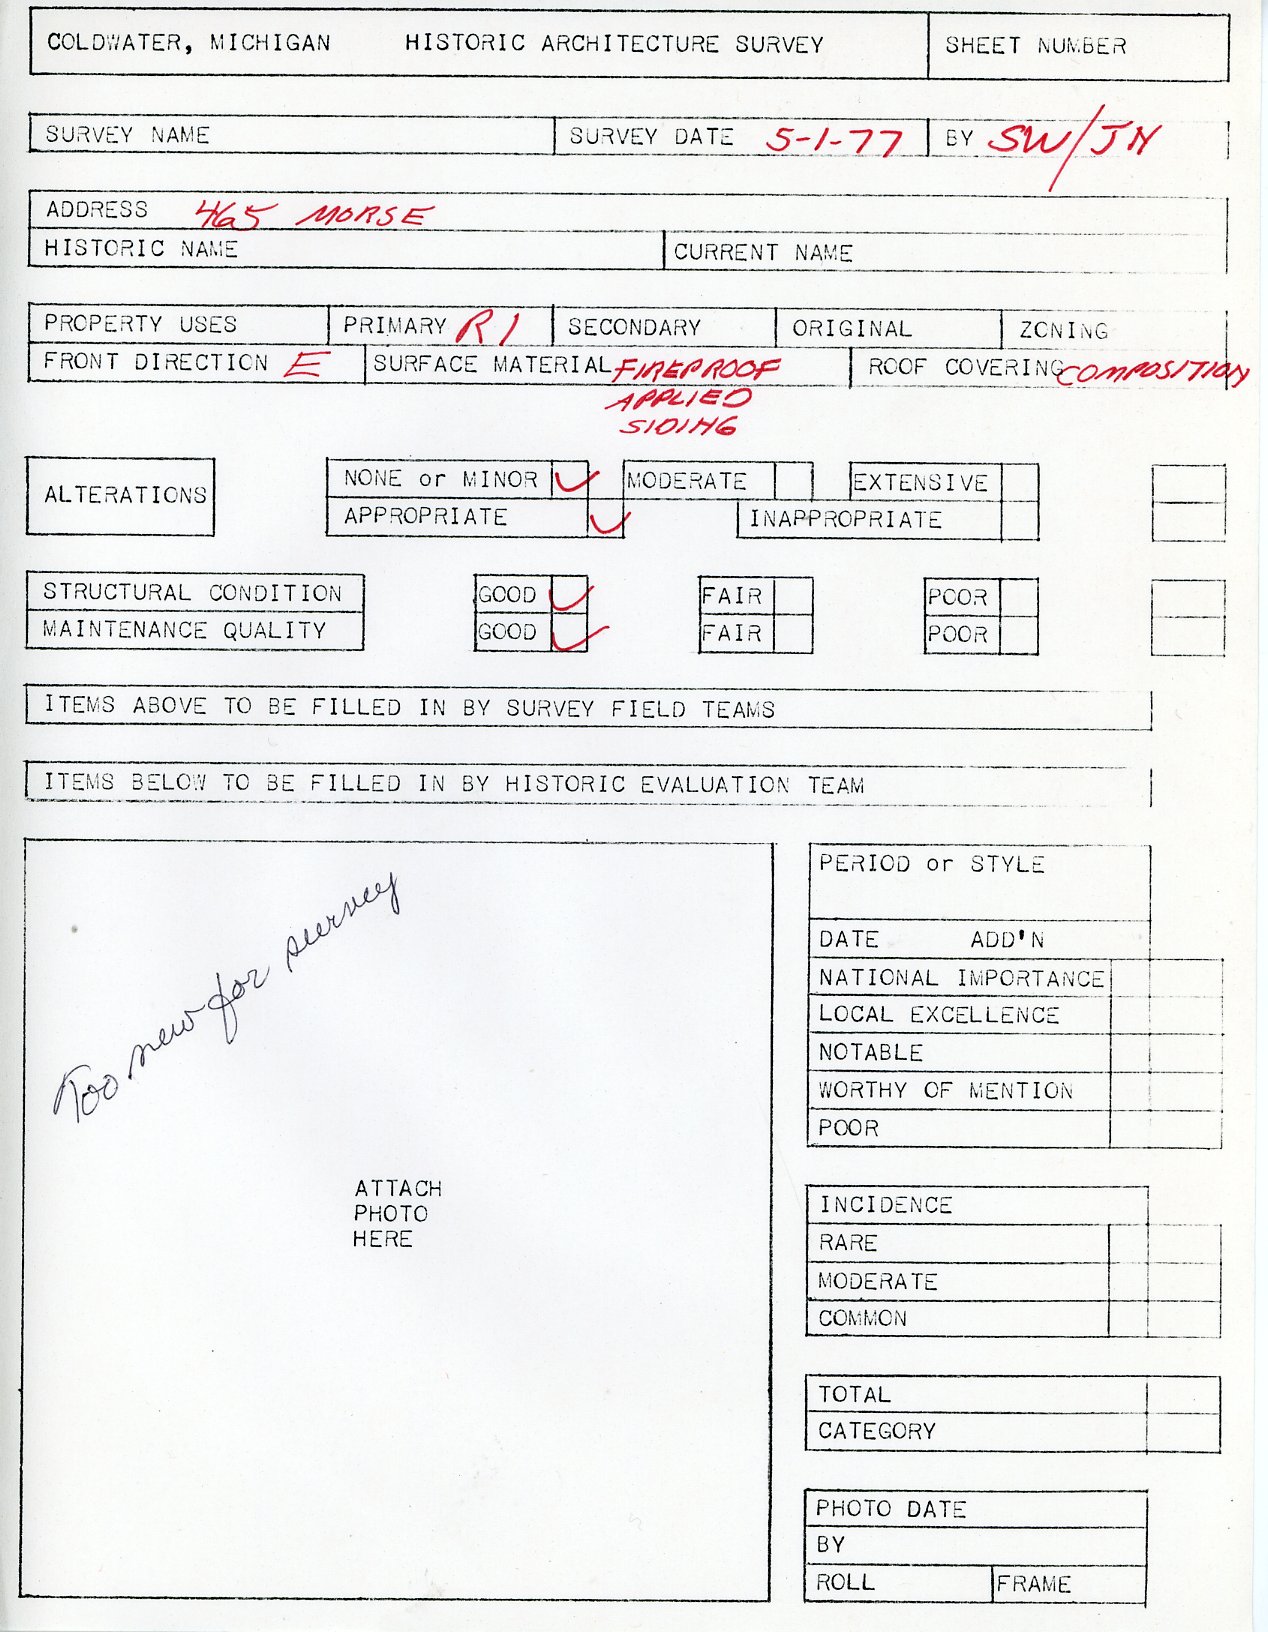 COLDWATER, MICHIGAN HISTORIC ARCHITECTURE SURVEY SHEET NUMBER
SURVEY NAME SURVEY DATE 5-1-77 BY SW/JN
ADDRESS 465 MORSE
HISTORIC NAME CURRENT NAME
PROPERTY USES PRIMARY R1 SECONDARY ORIGINAL ZONING
FRONT DIRECTION E SURFACE MATERIAL FIREPROOF ROOF COVERING COMPOSITION
APPLIED
SIDING
ALTERATIONS NONE or MINOR ✓ MODERATE EXTENSIVE
APPROPRIATE ✓ INAPPROPRIATE
STRUCTURAL CONDITION GOOD ✓ FAIR POOR
MAINTENANCE QUALITY GOOD ✓ FAIR POOR
ITEMS ABOVE TO BE FILLED IN BY SURVEY FIELD TEAMS
ITEMS BELOW TO BE FILLED IN BY HISTORIC EVALUATION TEAM
Too new for survey
ATTACH
PHOTO
HERE
PERIOD or STYLE
DATE ADD'N
NATIONAL IMPORTANCE
LOCAL EXCELLENCE
NOTABLE
WORTHY OF MENTION
POOR
INCIDENCE
RARE
MODERATE
COMMON
TOTAL
CATEGORY
PHOTO DATE
BY
ROLL FRAME